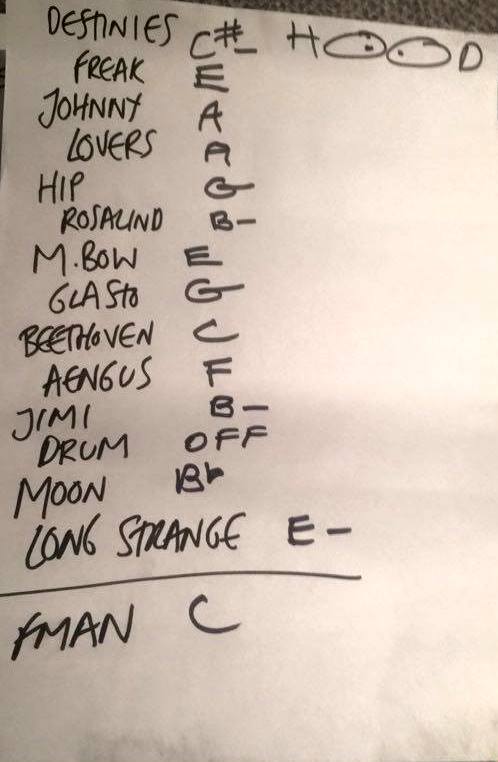 DESTINIES C#- HOOD
FREAK E
JOHNNY A
LOVERS A
HIP G
ROSALIND B-
M.BOW E
GLASTO G
BEETHOVEN C
AENGUS F
JIMI B-
DRUM OFF
MOON Bb
LONG STRANGE E-
FMAN C